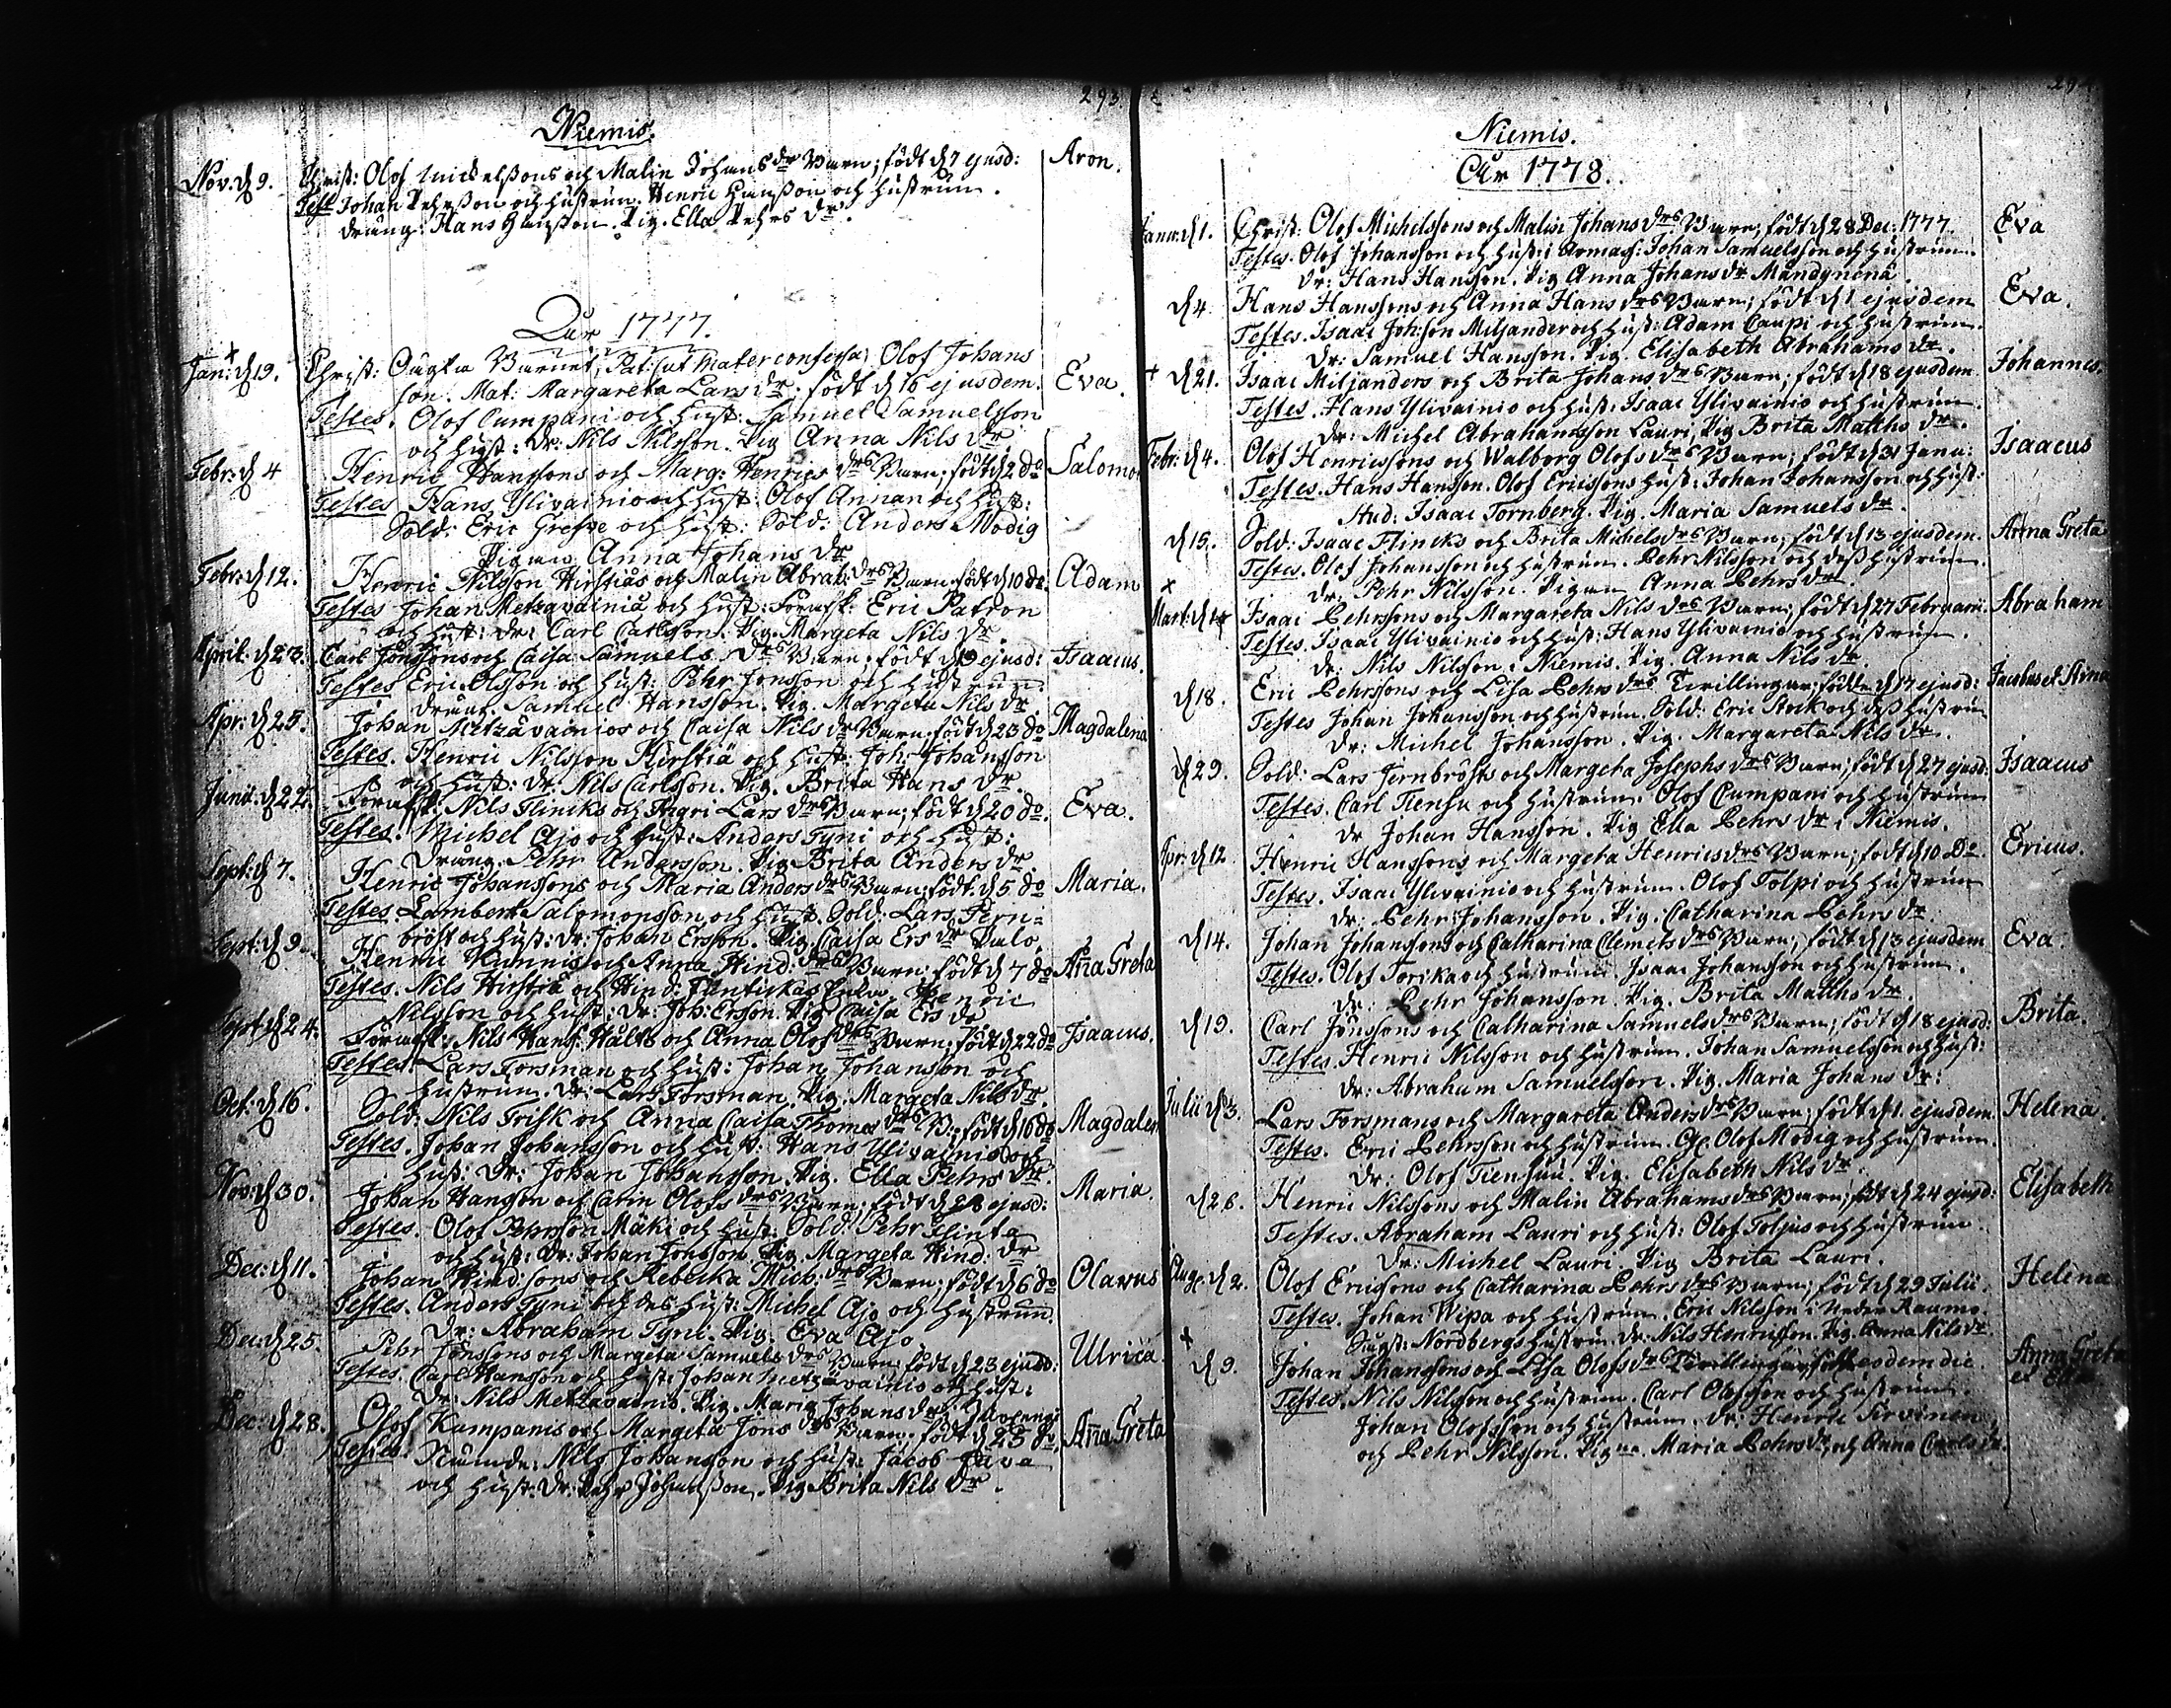 293.
Niemis.
Nov. d 9. Christ: Olof Mickelssons och Malin Johans drs Barn; född d 7 ejusd: Aron.
Test Johan Pehrsson och hustrun. Henric Hansson och hustrun.
dräng: Hans Hansson. Pig. Ella Pehrs dr.
Åhr 1777.
Jan: d 19. Christ: Oägta Barnet, Pat: (ut mater confessa) Olof Johans Eva.
son. Mat: Margareta Lars dr. född d 16 ejusdem.
Testes. Olof Cumpani och hust: Samuel Samuelsson
och hust: dr: Nils Nilsson. Pig Anna Nils dr
Febr: d 4 Henric Hanssons och Marg: Henrics drs Barn; född d 2 do Salomon
Testes Hans Ylivainio och hust: Olof Annan och hust:
Sold: Eric Grefve och hust: Sold: Anders Modig
Pigan Anna Johans dr
Febr: d 12. Henric Nilsson Hirstiäs och Malin Abrah: drs Barn född d 10 do. Adam
Testes Johan Metzavainiä och hust: Eric Patron
och hust: dr: Carl Carlsson. Pig. Margeta Nils dr.
April: d 23. Carl Jönssons och Caisa Samuels drs Barn; född d ejusd: Isaacus.
Testes Eric Olsson och hust: Pehr Jonsson och hustrun:
dräng. Samuel Hansson. Pig. Margeta Nils dr.
Apr: d 25. Johan Metzävainios och Caisa Nils dr Barn född d 23 do Magdalena
Testes. Henric Nilsson Hirstiä och hust: Joh: Johansson
och hust: dr: Nils Carlsson. Pig. Brita Hans dr.
Junii: d 22. Nils Flinks och Ingri Lars drs Barn; född d 20 do. Eva.
Testes. Michel Ajo och hust: Anders Tyni och hust:
Dräng. Pehr Andersson. Pig Brita Anders dr
Sept: d 7. Henric Johanssons och Maria Anders drs Barn; född: d 5 do Maria.
Testes Lambert Salomonsson och hust. Sold: Lars Jern=
bröst och hust: dr: Johan Ersson. Pig: Caisa Ers dr Palo.
Sept: d 9. Henric och Anna Hind: drs Barn; född d 7 do Aña Greta
Testes. Nils Hirstiä och Hind: Henric
Nilsson och hust: dr: Joh: Ersson. Pig Caisa Ers dr
Sept d 24. Nils Hans: Hälts och Anna Olofs drs Barn; född d 22 do Isaacus.
Testes Lars Forsman och hust: Johan Johansson och
hustrun. Dr: Lars Forsman. Pig. Margeta Nils dr.
Oct: d 16. Sold: Nils Frisk och Anna Caisa Thomas drs B: född d 16 do Magdalena
Testes. Johan Johansson och hust. Hans Ylivainio och
hust: dr: Johan Johansson. Pig. Ella Pehrs dr.
Nov: d 30. Johan Hansson och Carin Olofs drs Barn; född d 28 ejusd: Maria.
Testes. Olof Pehrsson Mäki och hust: Sold: Pehr
och hust: dr: Johan Jonsson Pig Margeta Hind: dr
Dec: d 11. Johan Hind:sons och Rebecka Mich: drs Barn; född d 6 do Olavus
Testes. Anders Tyni och des hust: Michel Ajo och hustrun.
Dr: Abraham Tyni. Pig. Eva Ajo
Dec: d 25. Pehr Jönssons och Margeta Samuels drs Barn; född d 23 ejusd: Ulrica.
Testes. Carl Hansson och hust: Johan Metzävainio och hust:
Dr: Nils Metzavainio. Pig. Maria Johans dr
Dec: d 28. Olof Kampanis och Margeta Jons drs Barn. född d 25 do Aña Greta
Testes: Nils Johansson och hust: Jacob
och hust: Dr: Pehr Johansson. Pig Brita Nils dr.
294
Niemis.
Åhr 1778.
Janu: d 1. Christ: Olof Michelssons och Malin Johans drs Barn; född d 28 Dec: 1777. Eva
Testes. Olof Johansson och hust: i Armas: Johan Samuelsson och hustrun.
Dr: Hans Hansson. Pig Anna Johans dr
d 4. Hans Hanssons och Anna Hans drs Barn; född d 1 ejusdem Eva.
Testes. Isaac Joh:son Miljander och hust: Adam Caupi och hustrun.
Dr: Samuel Hansson. Pig. Elisabeth Abrahams dr.
+ d 21. Isaac Miljanders och Brita Johans drs Barn; född d 18 ejusdem. Johannes.
Testes. Hans Ylivainio och hust: Isaac Ylivainio och hustrun.
Dr: Michel Abrahamsson Lauri, Pig Brita Matths dr.
Febr: d 4. Olof Henricssons och Walborg Olofs drs Barn; född d 31 Janu: Isaacus
Testes. Hans Hansson. Olof Ericssons hust: Johan Johansson och hust:
Stud: Isaac Tornberg. Pig. Maria Samuels dr
d 15. Sold: Isaac Flincks och Brita Michels drs Barn; född d 13 ejusdem. Anna Greta
Testes. Olof Johansson och hustrun. Pehr Nilsson och dess hustrun.
dr: Pehr Nilsson. Pigan Anna Pehrs dr.
Mart: d Isaac Pehrssons och Margareta Nils drs Barn; född d 27 Februarii. Abraham
Testes. Isaac Ylivainio och hust: Hans Ylivainio och hustrun.
dr: Nils Nilsson i Niemis. Pig. Anna Nils dr.
d 18. Eric Pehrssons och Lisa Pehrs drs Tvillingar; födde d 17 ejusd: Jacobus et Stina
Testes Johan Johansson och hustrun. Sold: Eric Rock och dess hustrun
Dr: Michel Johansson. Pig. Margareta Nils dr.
d 29. Sold: Lars Jernbrösts och Margeta Josephs drs Barn; född d 27 ejusd: Isaacus
Testes. Carl Tiensu och hustrun. Olof Cumpani och hustrun
Dr Johan Hansson. Pig Ella Pehrs dr i Niemis.
Apr: d 12 Henric Hanssons och Margeta Henrics drs Barn; född d 10 Do. Ericus.
Testes. Isaac Ylivainio och hustrun. Olof Tolpi och hustrun
dr: Pehr Johansson. Pig. Catharina Pehrs dr
d 14. Johan Johanssons och Catharina Clemets drs Barn; född d 13 ejusdem Eva.
Testes. Olof Torika och hustrun. Isaac Johansson och hustrun.
Dr: Pehr Johansson. Pig. Brita Matths dr.
d 19. Carl Jönssons och Catharina Samuels drs Barn; född d 18 ejusd: Brita.
Testes. Henric Nilsson och hustrun. Johan Samuelsson och hust:
Dr: Abraham Samuelsson. Pig. Maria Johans dr:
Julii d 3. Lars Forsmans och Margareta Anders drs Barn; född d 1. ejusdem Helena.
Testes. Eric Pehrsson och hustrun. Olof Modig och hustrun.
Dr: Olof Tiensuu. Pig. Elisabeth Nils dr
d 26. Henric Nilssons och Malin Abrahams drs Barn; född d 24 ejusd: Elisabeth
Testes. Abraham Lauri och hust: Olof Toljus och hustrun.
Dr: Michel Lauri. Pig Brita Lauri.
Aug: d 2. Olof Ericssons och Catharina Pehrs drs Barn; född d 29 Julii. Helena
Testes. Johan Wipa och hustrun. Eric Nilsson i Neder Raumo.
Nordbergs hustru. Dr: Nils Henricsson. Pig. Anna Nils dr
+ d 9. Johan Johanssons och Lisa Olofs drs Tvillingar, födde eodem die. Anna Greta
et Ella
Testes. Nils Nilsson och hustrun. Carl Olofsson och hustrun.
Johan Olofsson och hustrun. dr: Henric Sirvinen,
och Pehr Nilsson. Pigna Maria Pehrs dr, och Anna Carls dr.